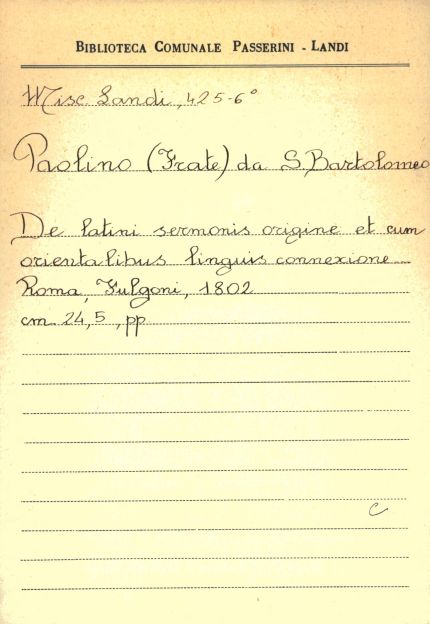 BIBLIOTECA COMUNALE PASSERINI - LANDI
Misc. Landi, 425-6°
Paolino (Frate) da S. Bartolomeo
De latini sermonis origine et cum
orientalibus linguis connexione
Roma, Fulgoni, 1802
cm. 24,5, pp.
C